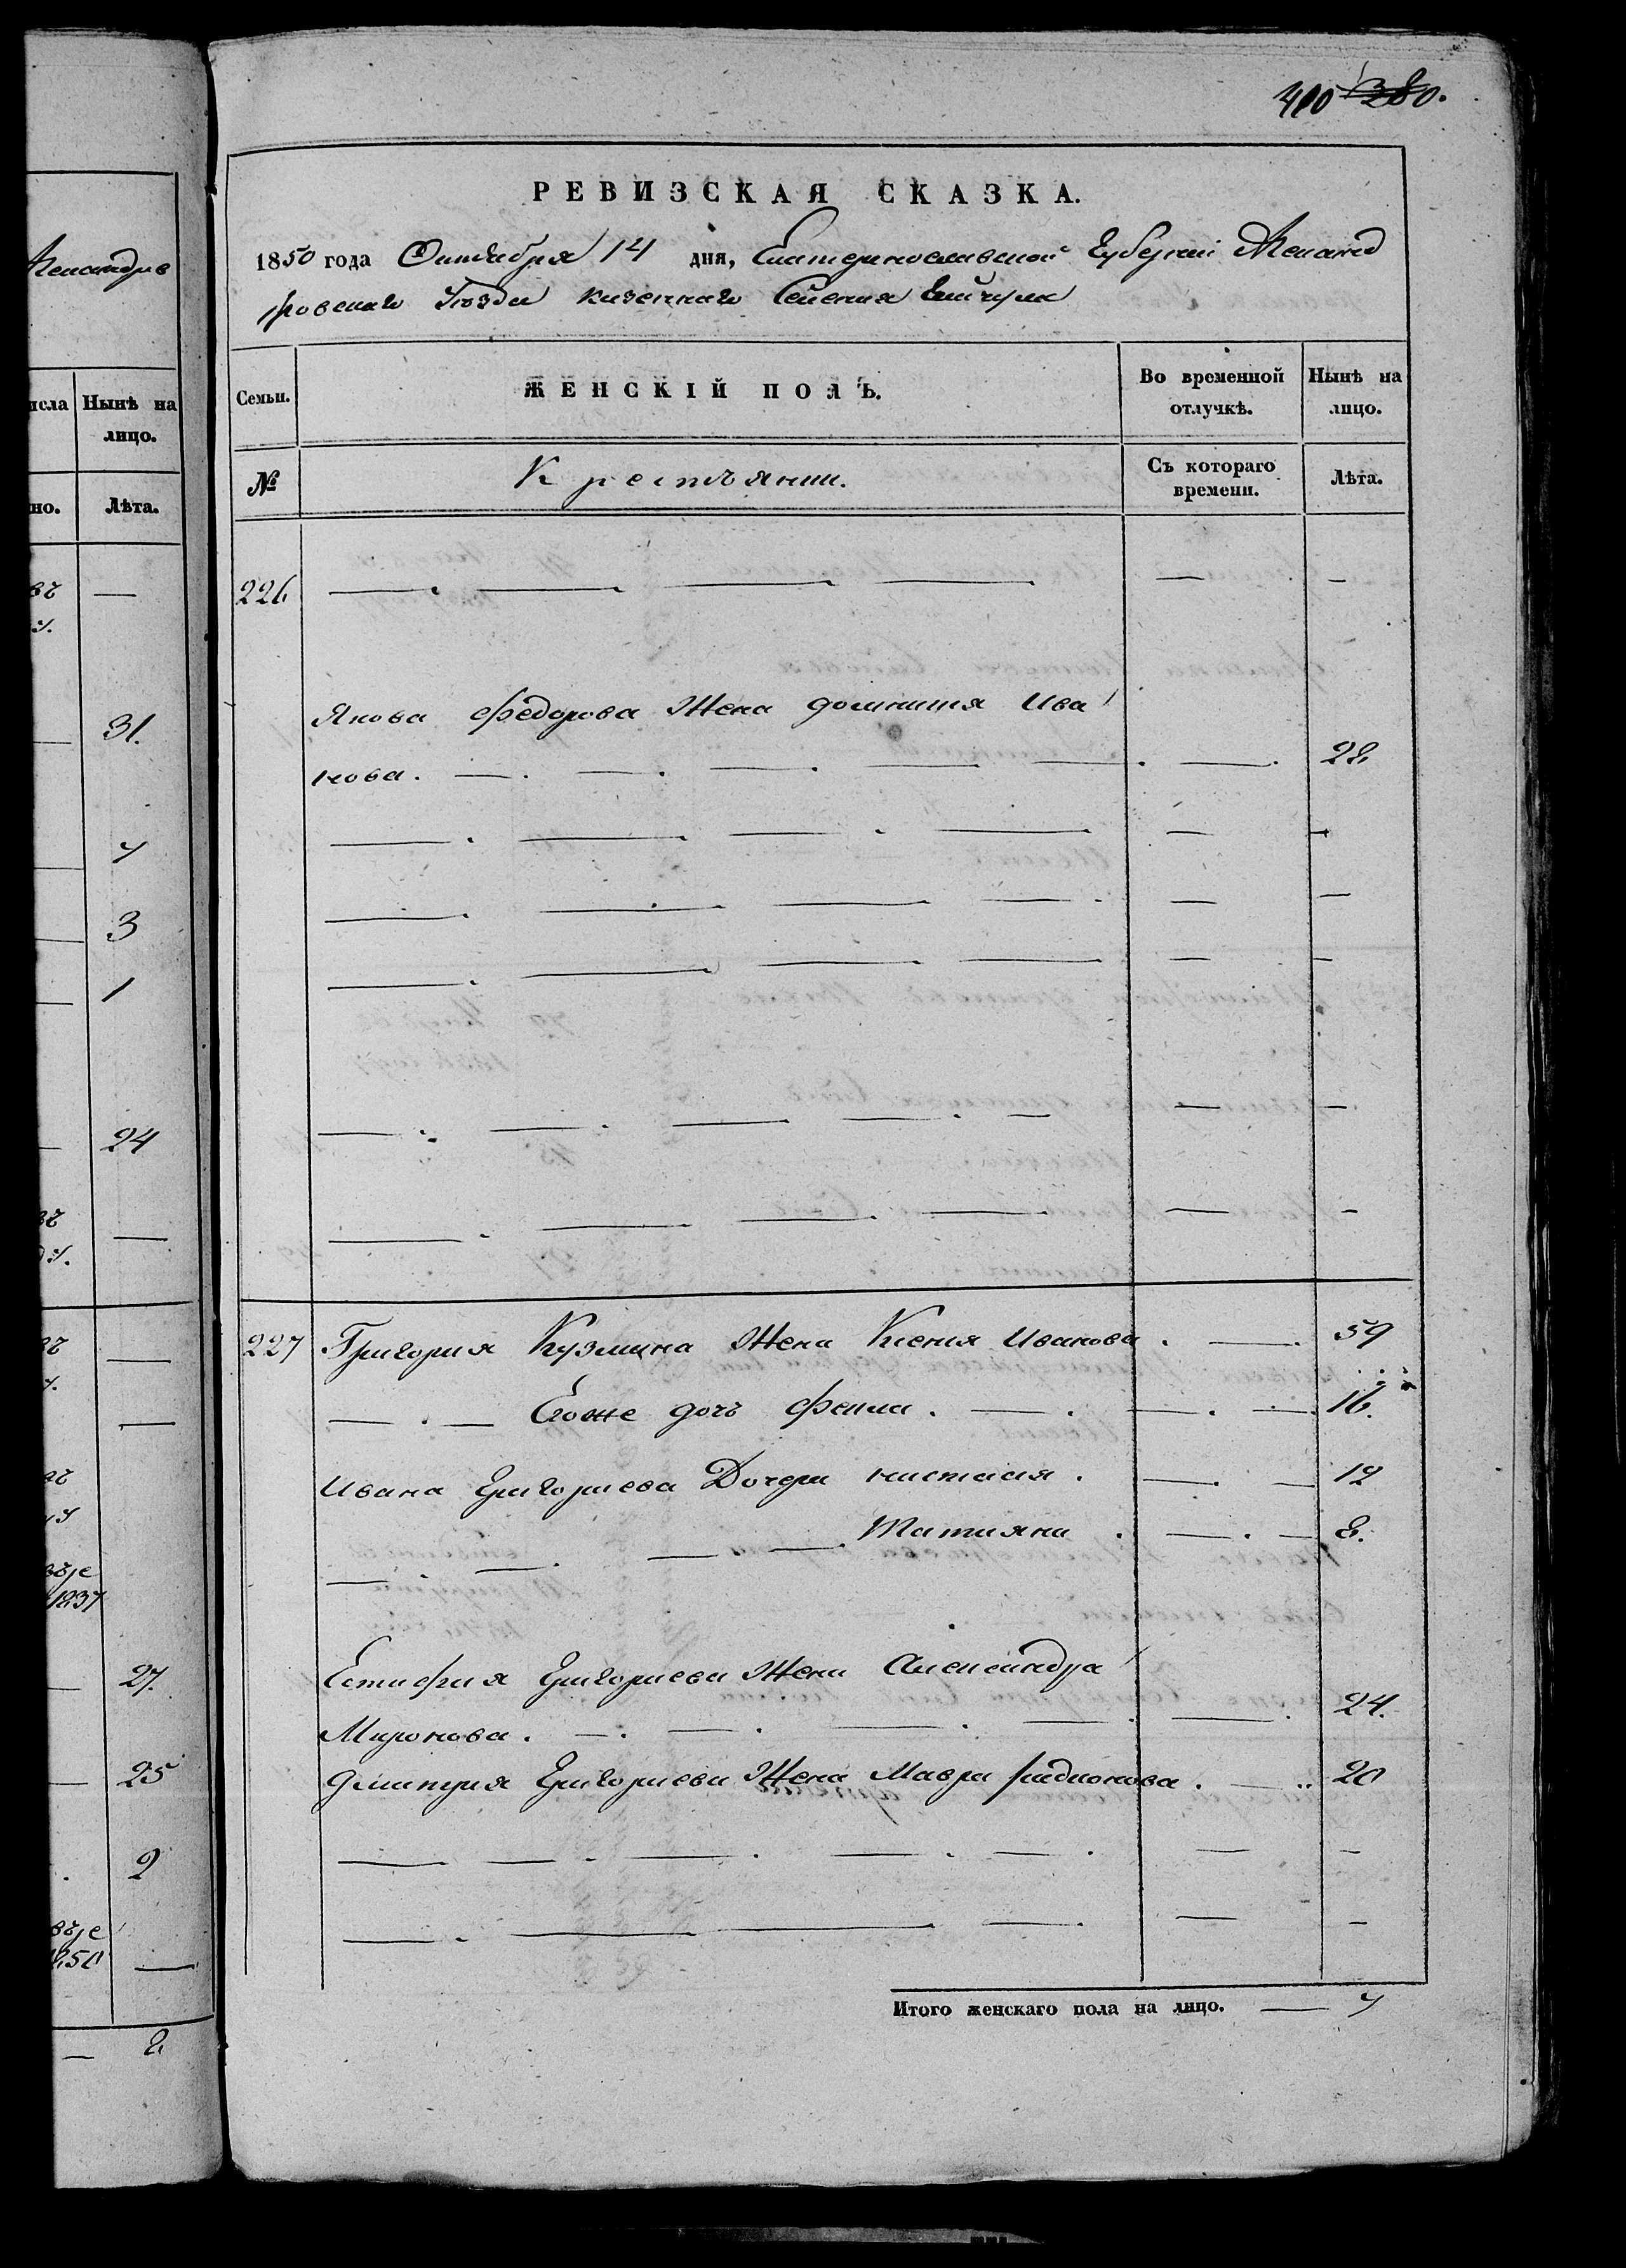 410 1380.
РЕВИЗСКАЯ СКАЗКА.
1850 года Октября 14 дня, Екатеринославской Губернии Александ
ровскаго Уезда казеннаго Селения
Семьи.
ЖЕНСКІЙ ПОЛЪ.
Во временной отлучкѣ.
Нынѣ на лицо.
№
Крестьянии.
Съ котораго времени.
Лѣта.
226 — — — — — —
Якова Федорова Жена домникия Ива
нова. — — — — — — 28
— — — — — —
— — — — — —
— — — — — —
— — — — — —
— — — — — —
227 Григория Кузмина Жена Ксения Иванова. — 59
— . — Егоже дочь Фекла. — . — . — . 16.
Ивана Григориева Дочери настасия. — . — 12
— . — . — — . Татияна . — . — 8.
Естафия Григориева Жена Александра
Миронова. — . — . — . — . — . 24.
дмитрия Григориева Жена Мавра радионова. — .. 20
— — . — . — . — . — —
— . — — — — —
Итого женскаго пола на лицо. — 7
Александров
исла
Нынѣ на лицо.
но.
Лѣта.
въ —
31.
7
3
1
24
27.
25
2
1837
1850
8